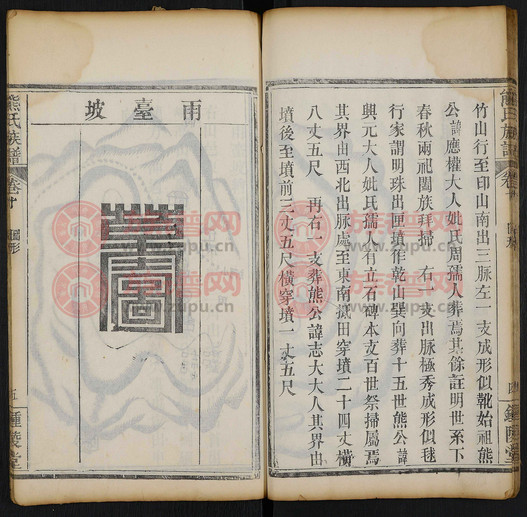 竹山行至印山南出三脉左一支成形似靴始祖熊
公諱應權大人妣氏周孺人葬焉其餘註明世系下
春秋兩祀闔族拜掃 右一支出脈極秀成形似毬
行家謂明珠出匣墳作乾山巽向葬十五世熊公諱
興元大人妣氏孺人有立石碑本支百世祭掃屬焉
其界由西北出脈處至東南墈田穿墳二十四丈橫
八丈五尺 再右一支葬熊公諱志大大人其界由
墳後至墳前三丈五尺橫穿墳一丈五尺
熊氏族譜
卷十
雨臺坡
墓圖
熊氏族譜
卷十
圖形
五
鍾陵堂
族谱网
www.zupu.cn